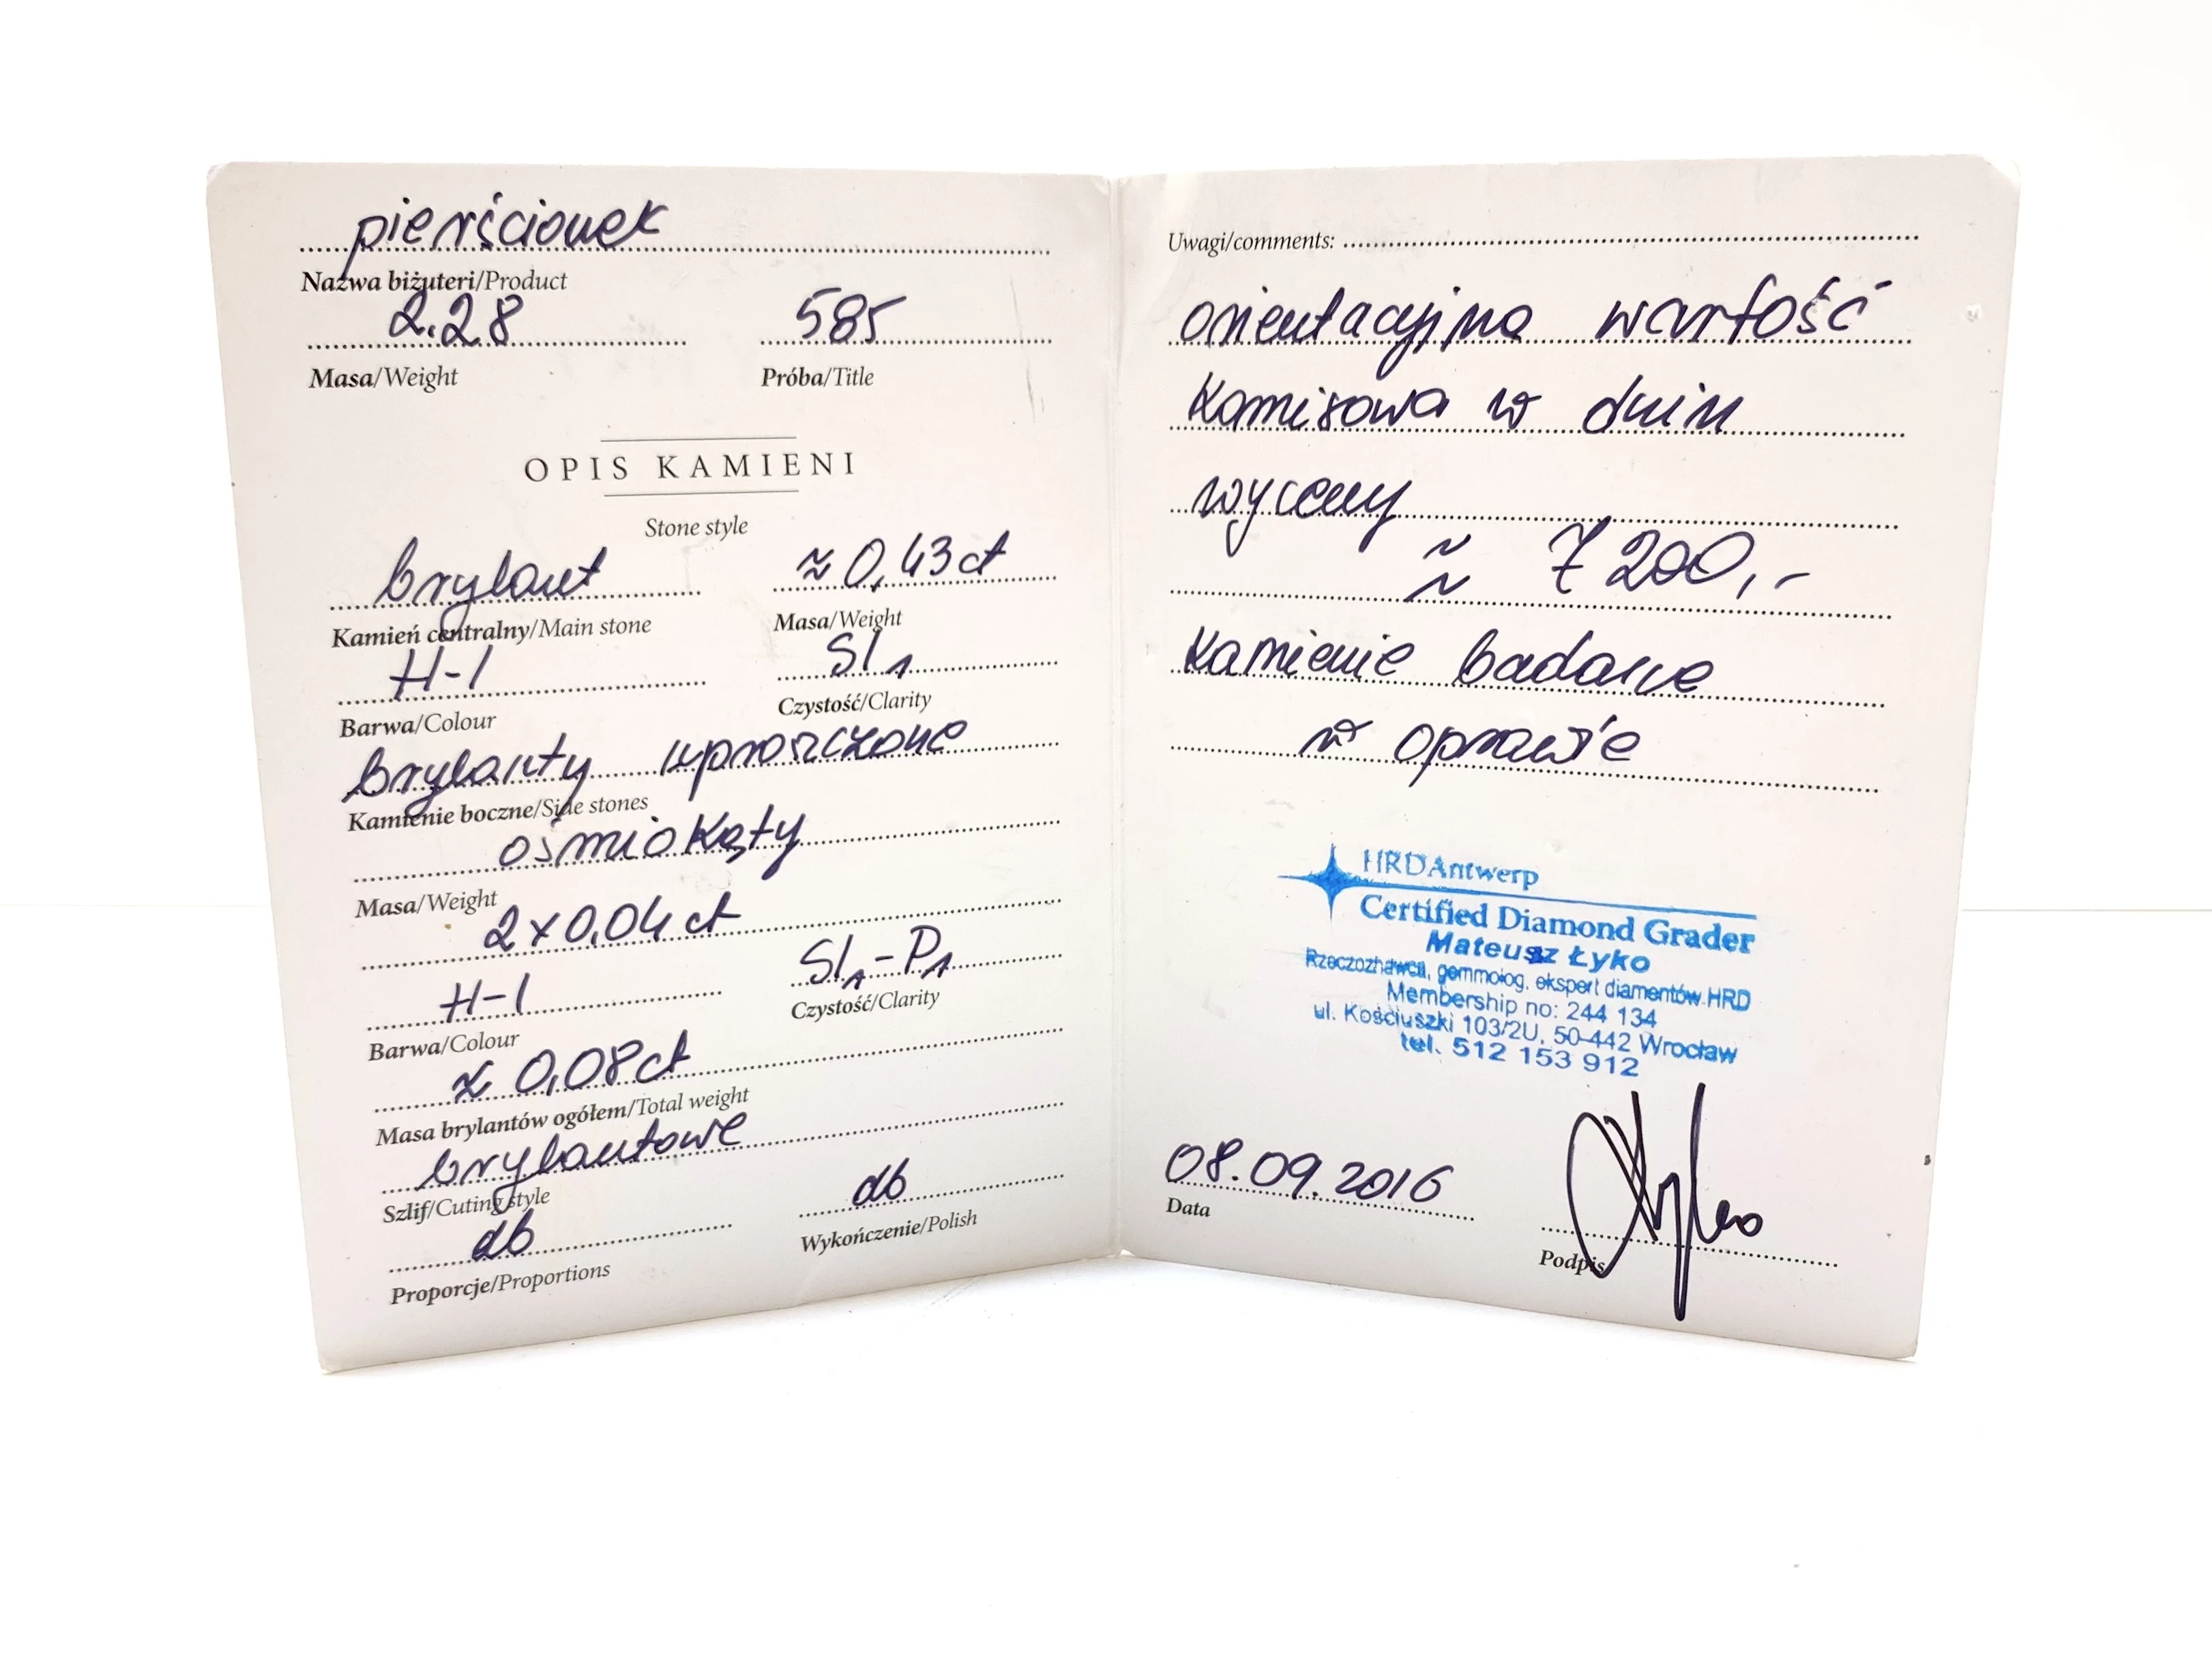 pierścionek
Nazwa biżuteri/Product
2.28 585
Masa/Weight Próba/Title
OPIS KAMIENI
Stone style
brylant ≈ 0,43 ct
Kamień centralny/Main stone Masa/Weight
H-I SI1
Barwa/Colour Czystość/Clarity
brylanty uproszczone
Kamienie boczne/Side stones
ośmiokąty
Masa/Weight
2 x 0,04 ct
H-I SI1-P1
Barwa/Colour Czystość/Clarity
≈ 0,08 ct
Masa brylantów ogółem/Total weight
brylantowe
Szlif/Cuting style
db db
Proporcje/Proportions Wykończenie/Polish
Uwagi/comments:
orientacyjna wartość
komisowa w dniu
wyceny
≈ 7 200,-
kamienie badane
w oprawie
HRD Antwerp
Certified Diamond Grader
Mateusz Łyko
Rzeczoznawca, gemmolog, ekspert diamentów HRD
Membership no: 244 134
ul. Kościuszki 103/2U, 50-442 Wrocław
tel. 512 153 912
08.09.2016 Łyko
Data Podpis